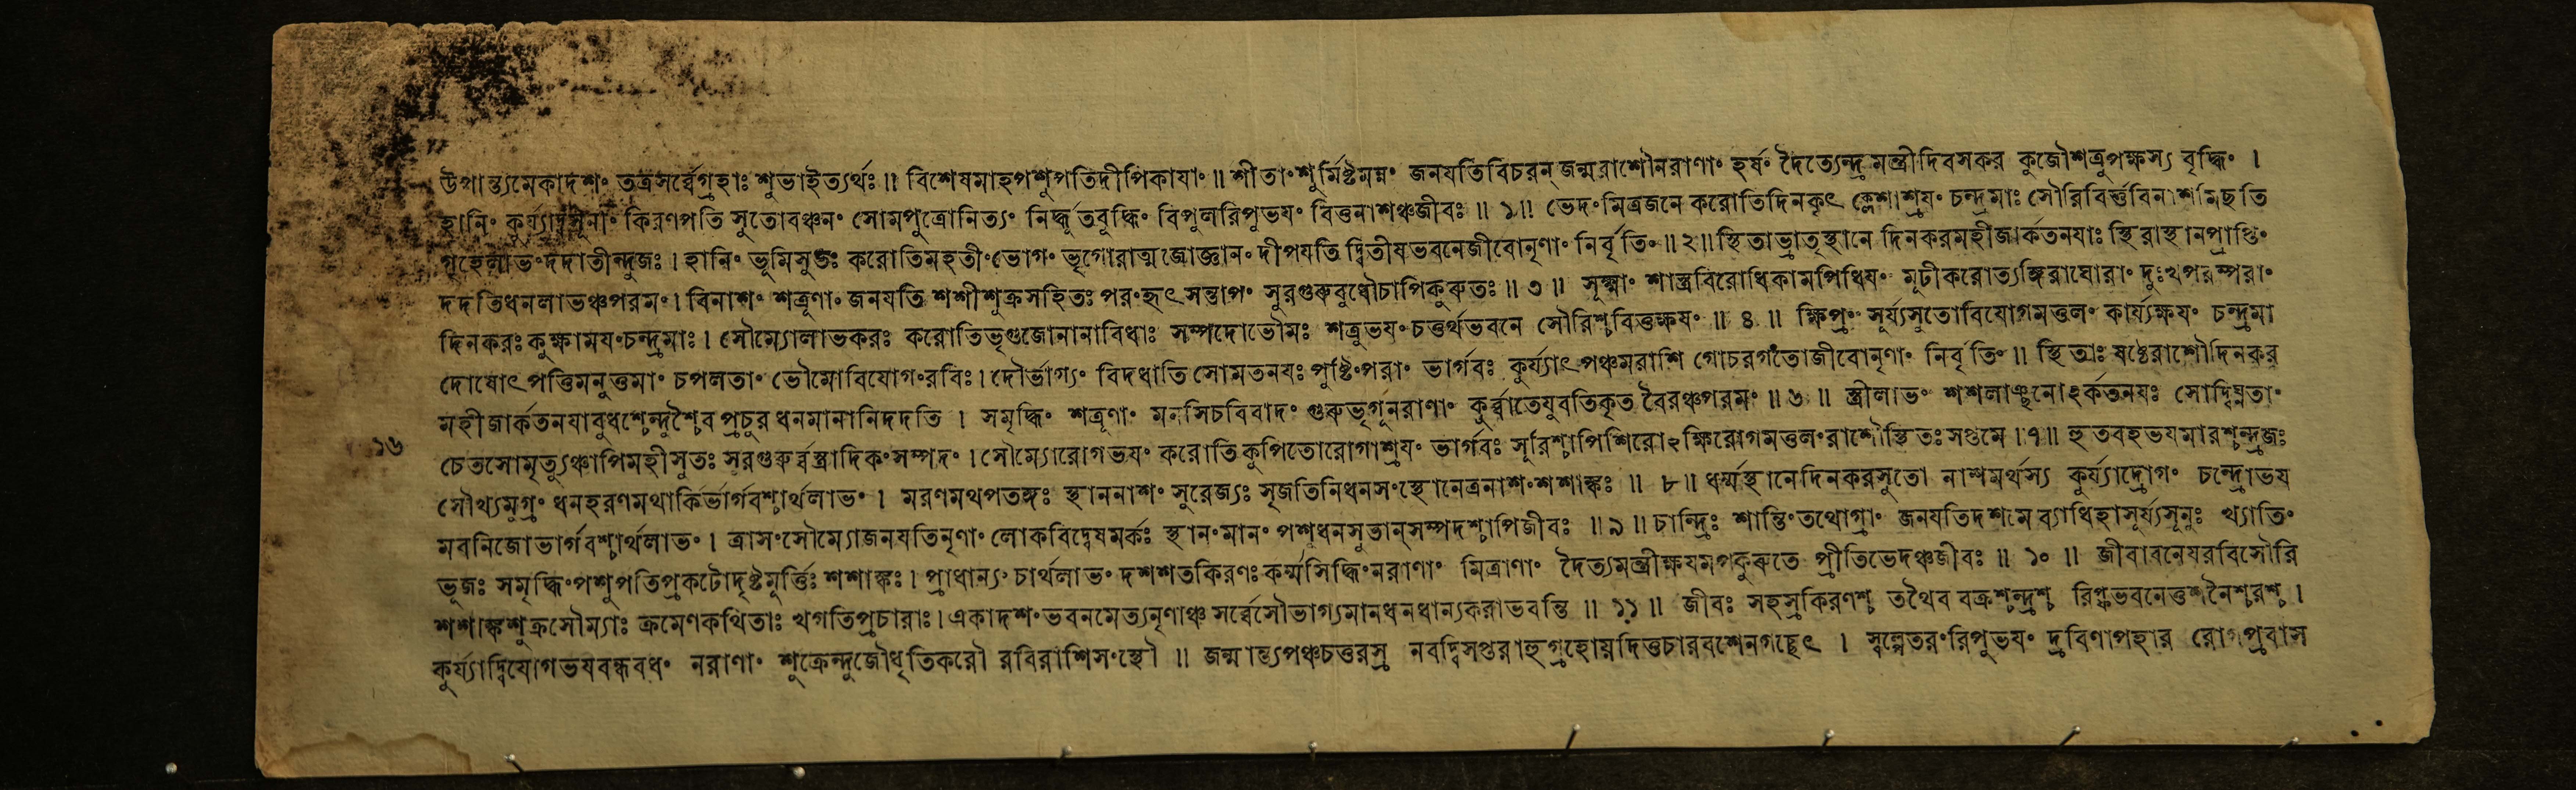 উপান্ত্যমেকাদশং তত্রসর্ব্বেগ্রহাঃ শুভাইত্যর্থঃ ॥ বিশেষমাহপশুপতিদীপিকাযাং ॥ শীতাংশুর্মিষ্টমন্নং জনযতিবিচরন্ জন্মরাশৌনরাণাং হর্ষং দৈত্যেন্দ্রমন্ত্রীদিবসকর কুজৌশত্রুপক্ষস্য বৃদ্ধিং ।
হানিং কুর্য্যাদ্বসূনাং কিরণপতি সুতোবঞ্চনং সোমপুত্রোনিত্যং নির্দ্ধূতবুদ্ধিং বিপুলরিপুভযং বিত্তনাশঞ্চজীবঃ ॥ ১॥ ভেদংমিত্রজনে করোতিদিনকৃৎ ক্লেশাশ্রযং চন্দ্রমাঃ সৌরির্বিত্তবিনাশমিছতি
গৃহেলাভংদদাতীন্দুজঃ । হানিং ভূমিসুতঃ করোতিমহতীংভোগং ভৃগোরাত্মজোজ্ঞানংদীপযতি দ্বিতীযভবনেজীবোনৃণাং নির্বৃতিং ॥ ২॥ স্থিতাভ্রাতৃস্থানে দিনকরমহীজার্কতনযাঃ স্থিরাস্থানপ্রাপ্তিং
দদতিধনলাভঞ্চপরমং । বিনাশং শত্রূণাং জনযতি শশীশুক্রসহিতঃ পরংহৃৎসন্তাপং সুরগুরুবুধৌচাপিকুরুতঃ ॥ ৩ ॥ সূক্ষ্মাং শাস্ত্রবিরোধিকামপিধিযং মূঢীকরোত্যঙ্গিরাঘোরাং দুঃখপরম্পরাং
দিনকরঃকুক্ষামযংচন্দ্রমাঃ । সৌম্যোলাভকরঃ করোতিভৃগুজোনানাবিধাঃ সম্পদোভৌমঃ শত্রুভযংচতুর্থভবনে সৌরিশ্চবিত্তক্ষযং ॥ ৪ ॥ ক্ষিপ্রং সূর্য্যসুতোবিযোগমতুলং কার্য্যক্ষযং চন্দ্রমা
দোষোৎপত্তিমনুত্তমাং চপলতাং ভৌমোবিযোগংরবিঃ । দৌর্ভাগ্যং বিদধাতি সোমতনযঃ পুষ্টিংপরাং ভার্গবঃ কুর্য্যাৎপঞ্চমরাশি গোচরগতোজীবোনৃণাং নির্বৃতিং ॥ স্থিতাঃ ষষ্ঠেরাশৌদিনকর
মহীজার্কতনযাবুধশ্চেন্দুশ্চৈব প্রচুর ধনমানানিদদতি । সমৃদ্ধিং শত্রূণাং মনসিচবিবাদং গুরুভৃগূনরাণাং কুর্ব্বাতেযুবতিকৃত বৈরঞ্চপরমং ॥ ৬ ॥ স্ত্রীলাভং শশলাঞ্ছনোঽর্কতনযঃ সোদ্বিগ্নতাং
১৬ চেতসোমৃত্যুঞ্চাপিমহীসুতঃ সুরগুরুর্ব্বস্ত্রাদিকংসম্পদং । সৌম্যোরোগভযং করোতিকুপিতোরোগাশ্রযং ভার্গবঃ সূরিশ্চাপিশিরোঽক্ষিরোগমতুলংরাশৌস্থিতঃ সপ্তমে ।৭॥ হুতবহভযমারশ্চন্দ্রজঃ
সৌখ্যমুগ্রং ধনহরণমথার্কির্ভার্গবশ্চার্থলাভং । মরণমথপতঙ্গঃ স্থাননাশং সুরেজ্যঃ সৃজতিনিধনসংস্থোনেত্রনাশংশশাঙ্কঃ ॥ ৮॥ ধর্ম্মস্থানেদিনকরসুতো নাশমর্থস্য কুর্য্যাদ্রোগং চন্দ্রোভয
মবনিজোভার্গবশ্চার্থলাভং । ত্রাসংসৌম্যোজনযতিনৃণাং লোকবিদ্বেষমর্কঃ স্থানংমানং পশুধনসুতান্সম্পদশ্চাপিজীবঃ ॥ ৯॥ চান্দ্রিঃ শান্তিংতথোগ্রাং জনযতিদশমে ব্যাধিহাসূর্য্যসূনুঃ খ্যাতিং
ভূজঃ সমৃদ্ধিংপশুপতিপ্রকটোদৃষ্টমূর্ত্তিঃ শশাঙ্কঃ । প্রাধান্যং চার্থলাভং দশশতকিরণঃকর্ম্মসিদ্ধিংনরাণাং মিত্রাণাং দৈত্যমন্ত্রীক্ষযমপকুরুতে প্রীতিভেদঞ্চজীবঃ ॥ ১০ ॥ জীবাবনেযরবিসৌরি
শশাঙ্কশুক্রসৌম্যাঃ ক্রমেণকথিতাঃ খগতিপ্রচারাঃ । একাদশংভবনমেত্যনৃণাঞ্চ সর্ব্বেসৌভাগ্যমানধনধান্যকরাভবন্তি ॥ ১১ ॥ জীবঃ সহস্রকিরণশ্চ তথৈব বক্রশ্চন্দ্রশ্চ রিপ্ফভবনেতুশনৈশ্চরশ্চ ।
কুর্য্যাদ্বিযোগভযবন্ধবধং নরাণাং শুক্রেন্দুজৌধৃতিকরৌ রবিরাশিসংস্থৌ ॥ জন্মান্ত্যপঞ্চচতুরস্র নবদ্বিসপ্তরাহুগ্রহোয়দিতুচারবশেনগছেৎ । স্বল্পেতরংরিপুভযং দ্রবিণাপহার রোগপ্রবাস